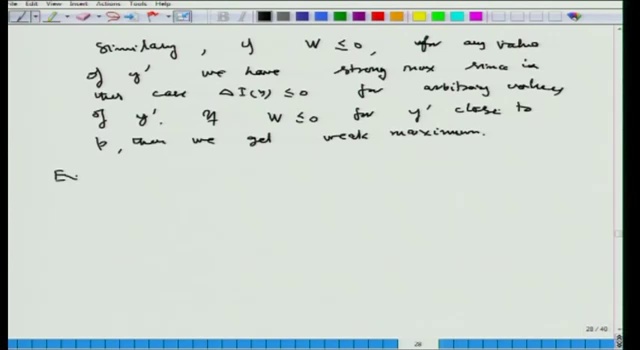 File View Insert Actions Tools Help
Similarly, if W ≤ 0, for any value
of y' we have strong max since in
this case ΔI(y) ≤ 0 for arbitrary values
of y'. If W ≤ 0 for y' close to
p, then we get weak maximum.
Ex
28 / 40
28